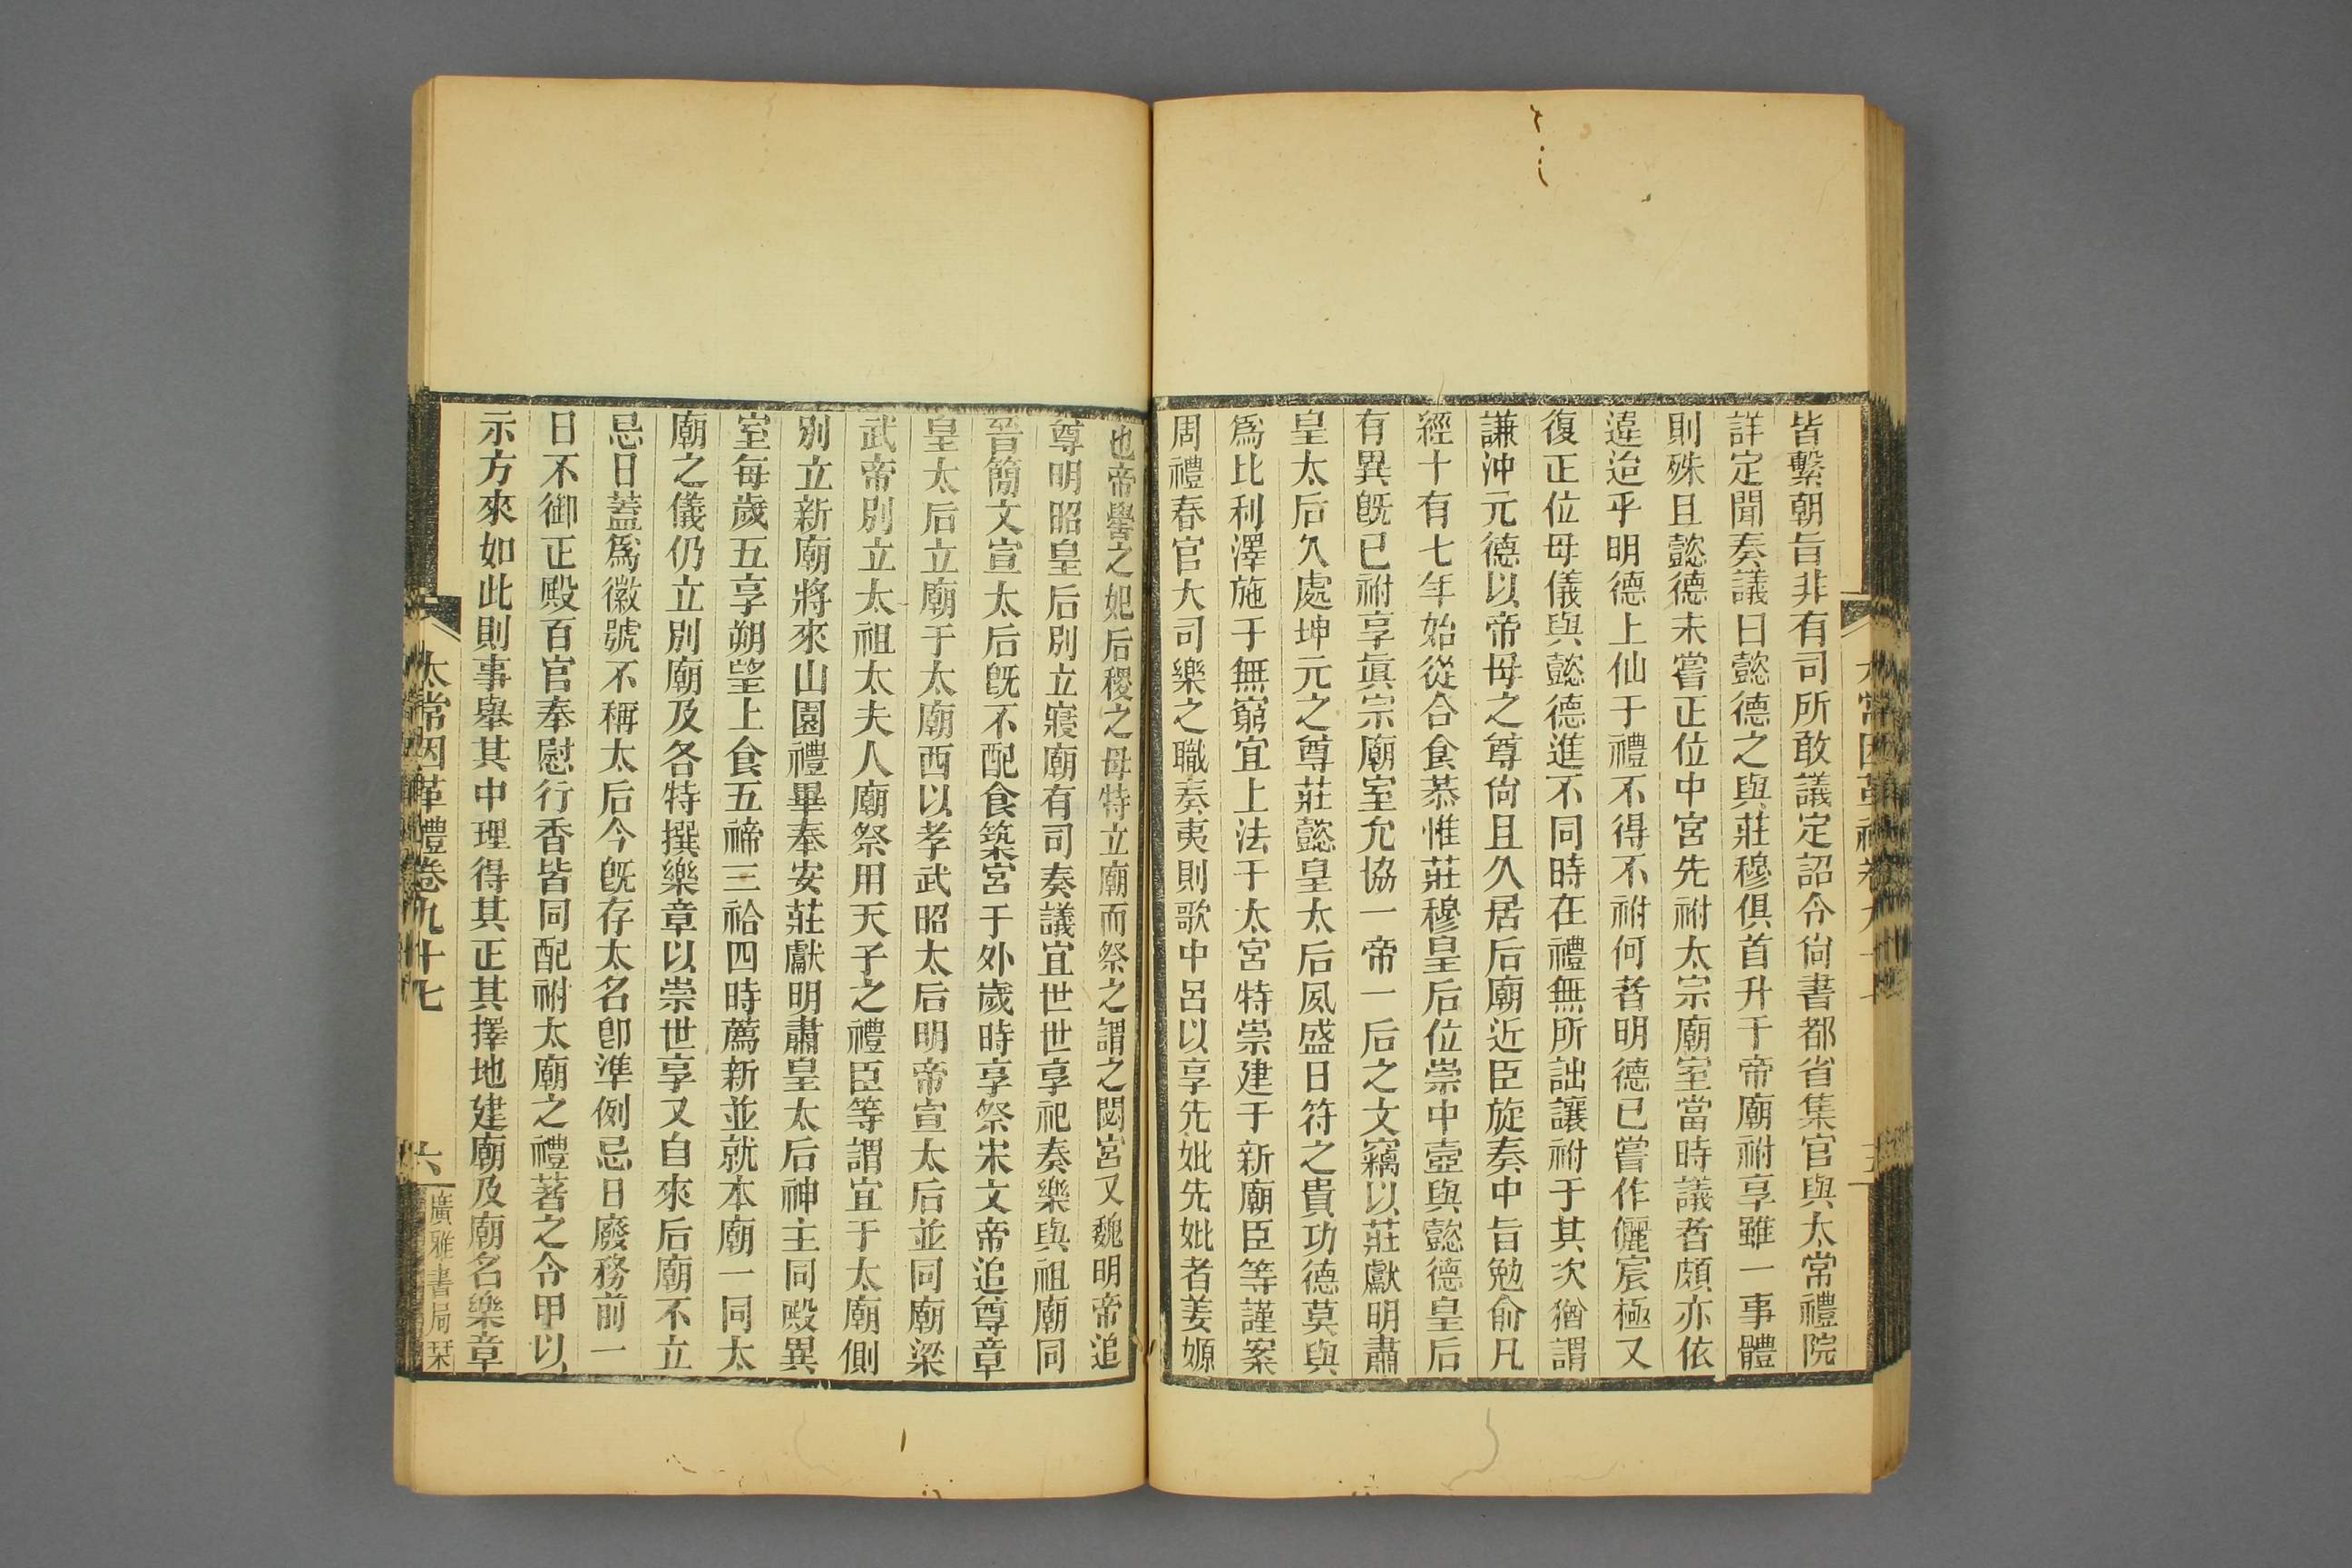 皆繫朝旨非有司所敢議定詔令尙書都省集官與太常禮院
詳定聞奏議曰懿德之與莊穆俱首升于帝廟祔享雖一事體
則殊且懿德未嘗正位中宮先祔太宗廟室當時議者頗亦依
違迨乎明德上仙于禮不得不祔何者明德已嘗作儷宸極又
復正位母儀與懿德進不同時在禮無所詘讓祔于其次猶謂
謙沖元德以帝母之尊尙且久居后廟近臣旋奏中旨勉俞凡
經十有七年始從合食恭惟莊穆皇后位崇中壼與懿德皇后
有異旣已祔享眞宗廟室允協一帝一后之文竊以莊獻明肅
皇太后久處坤元之尊莊懿皇太后夙盛日符之貴功德莫與
爲比利澤施于無窮宜上法于太宮特崇建于新廟臣等謹案
周禮春官大司樂之職奏夷則歌中呂以享先妣先妣者姜嫄
也帝嚳之妃后稷之母特立廟而祭之謂之閟宮又魏明帝追
尊明昭皇后別立寢廟有司奏議宜世世享祀奏樂與祖廟同
晉簡文宣太后旣不配食築宮于外歲時享祭宋文帝追尊章
皇太后立廟于太廟西以孝武昭太后明帝宣太后並同廟梁
武帝別立太祖太夫人廟祭用天子之禮臣等謂宜于太廟側
別立新廟將來山園禮畢奉安莊獻明肅皇太后神主同殿異
室每歲五享朔望上食五禘三祫四時薦新並就本廟一同太
廟之儀仍立別廟及各特撰樂章以崇世享又自來后廟不立
忌日蓋爲徽號不稱太后今旣存太名卽準例忌日廢務前一
日不御正殿百官奉慰行香皆同配祔太廟之禮著之令甲以
示方來如此則事舉其中理得其正其擇地建廟及廟名樂章
太常因革禮卷九十七
六
廣雅書局栞